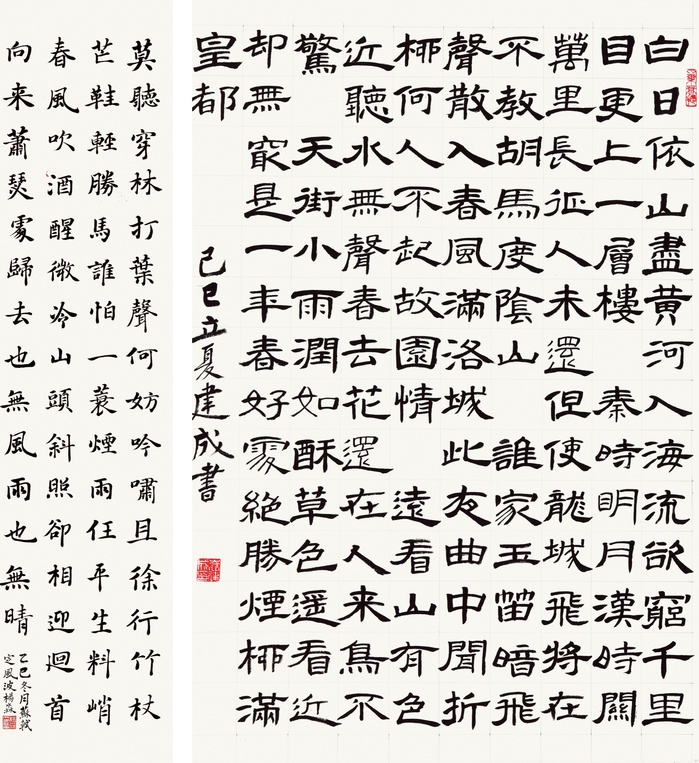 白日依山盡黄河入海流欲窮千里
目更上一層樓 秦時明月漢時關
萬里長征人未還 但使龍城飛將在
不教胡馬度陰山 誰家玉笛暗飛
聲散入春風滿洛城 此夜曲中聞折
柳何人不起故園情 遠看山有色
近聽水無聲春去花還在人来鳥不
驚 天街小雨潤如酥草色遥看近
却無 最是一年春好處絶勝煙柳滿
皇都
己巳立夏建成書
莫聽穿林打葉聲何妨吟嘯且徐行竹杖
芒鞋輕勝馬誰怕一蓑煙雨任平生料峭
春風吹酒醒微冷山頭斜照卻相迎迴首
向来蕭瑟處歸去也無風雨也無晴
乙巳冬月蘇軾
定風波楊焱